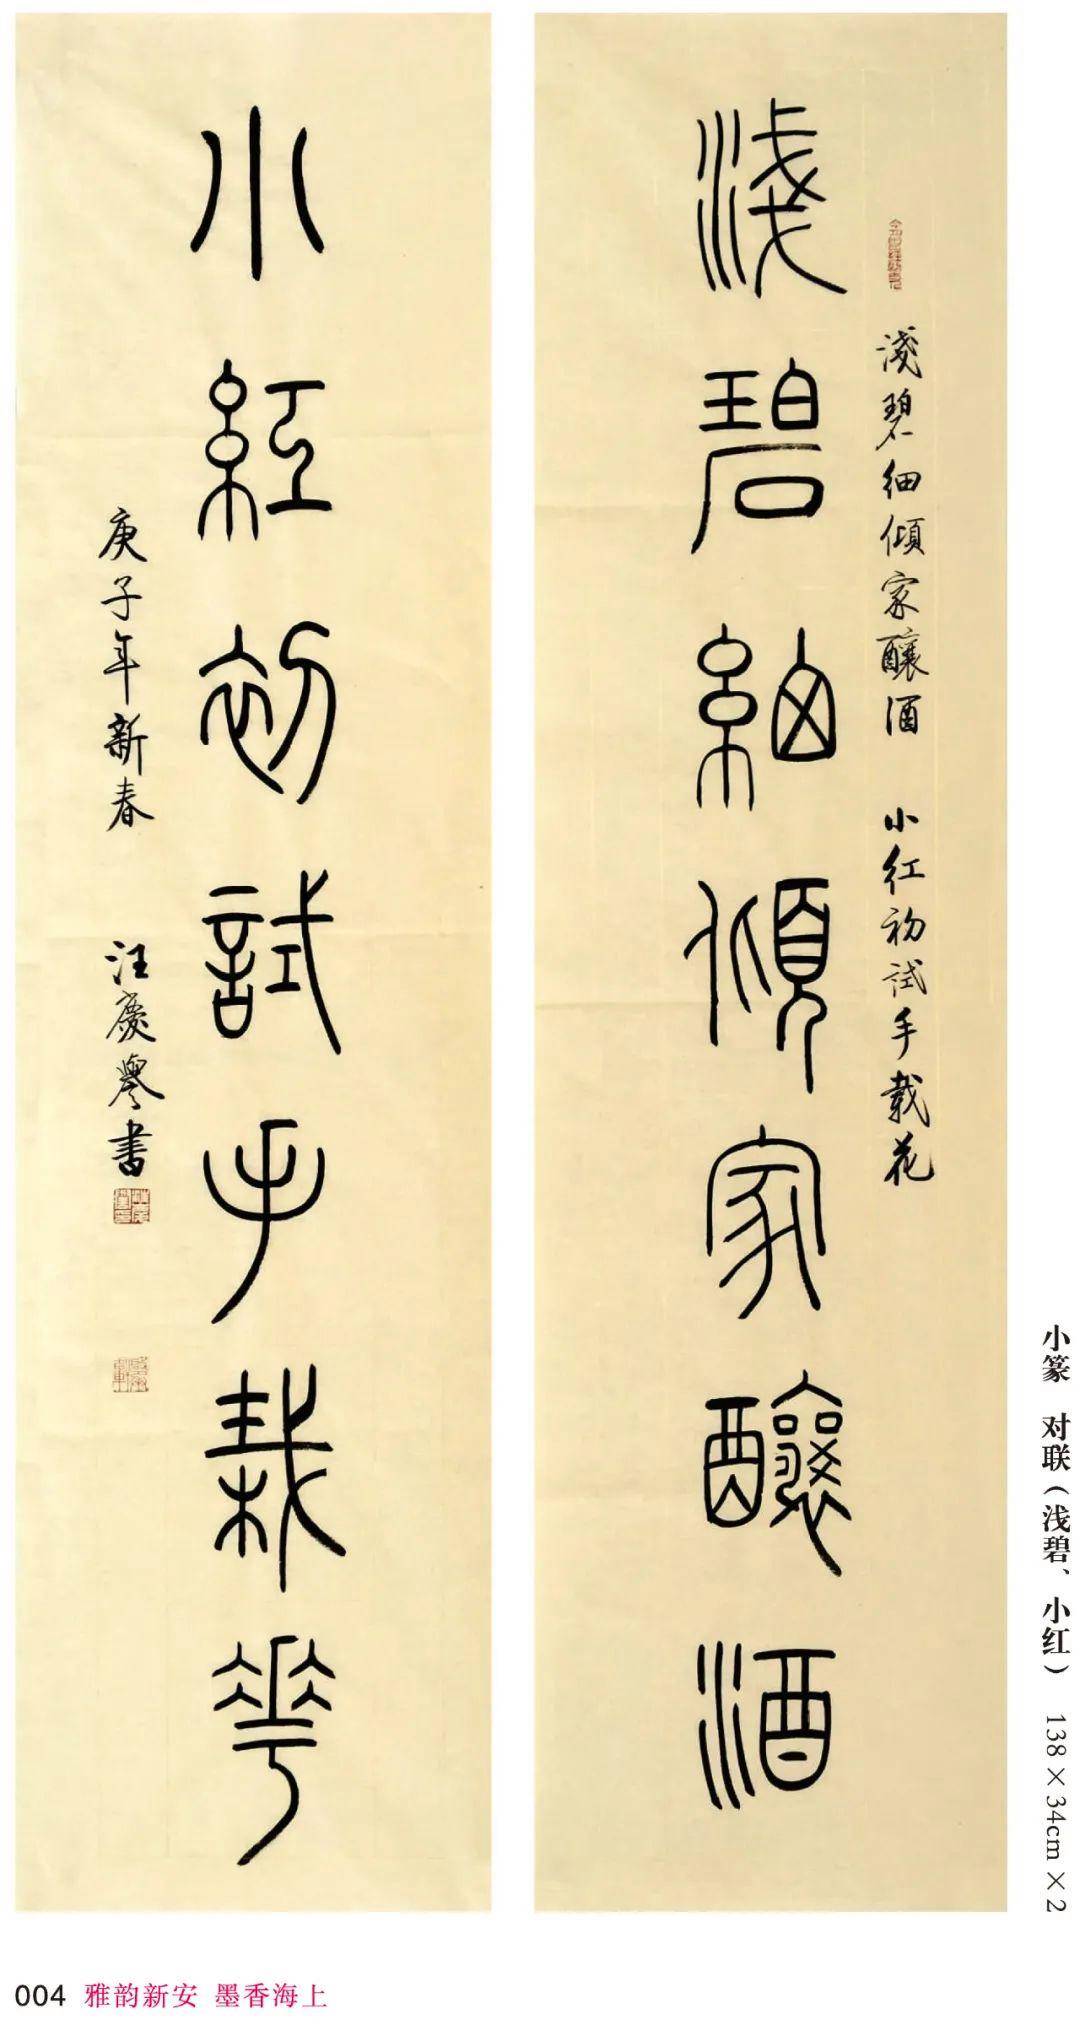 淺碧細傾家釀酒
淺碧細傾家釀酒 小红初試手載花
小紅初試手栽花
庚子年新春 汪慶譽書
小篆 对联（浅碧、小红） 138×34cm×2
004 雅韵新安 墨香海上